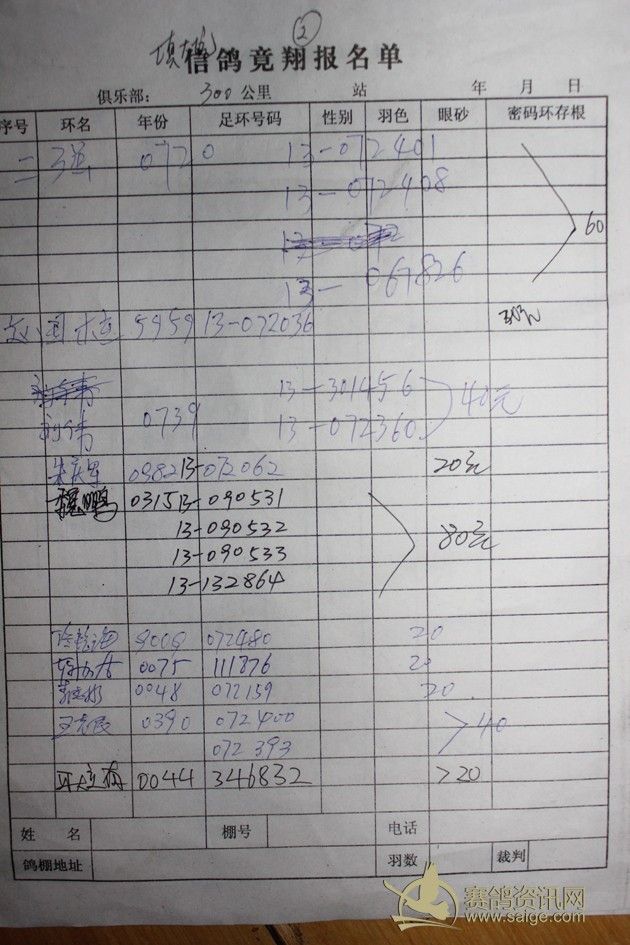 ②
信鸽竟翔报名单
俱乐部: 300公里 站 年 月 日
序号 环名 年份 足环号码 性别 羽色 眼砂 密码环存根
二 0720 13-072401
13-072408
60
13-067826
5959 13-072036 30元
13-301456 40元
刘伟 0739 13-072360
0982 13-072062 20元
0315 13-090531
13-090532 80元
13-090533
13-132864
9009 072480 20
0075 111876 20
0048 072159 20
0390 072400 >40
072393
0044 346832 >20
姓 名 棚号 电话
鸽棚地址 羽数 裁判
赛鸽资讯网
www.saige.com